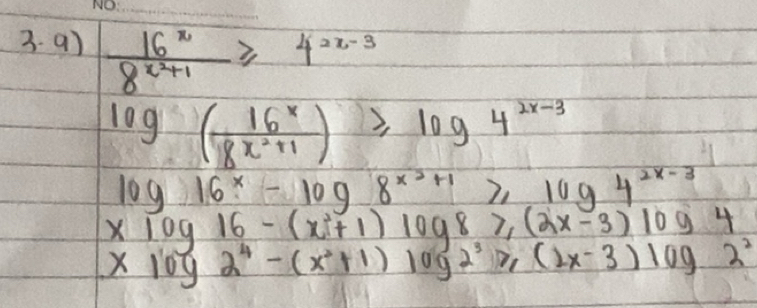 NO.
3. a) 16^x / 8^(x²+1) ≥ 4^(2x-3)
log (16^x / 8^(x²+1)) ≥ log 4^(2x-3)
log 16^x - log 8^(x²+1) ≥ log 4^(2x-3)
x log 16 - (x²+1) log 8 ≥ (2x-3) log 4
x log 2⁴ - (x²+1) log 2³ ≥ (2x-3) log 2²